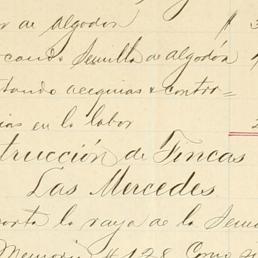 or de algodon $ 3
rcando Semilla de algodón
tando acequias & contro=
ias en la labor 2
trucción de Fincas
Las Mercedes
porta la raya de la Sem
Memoria #128 Como si